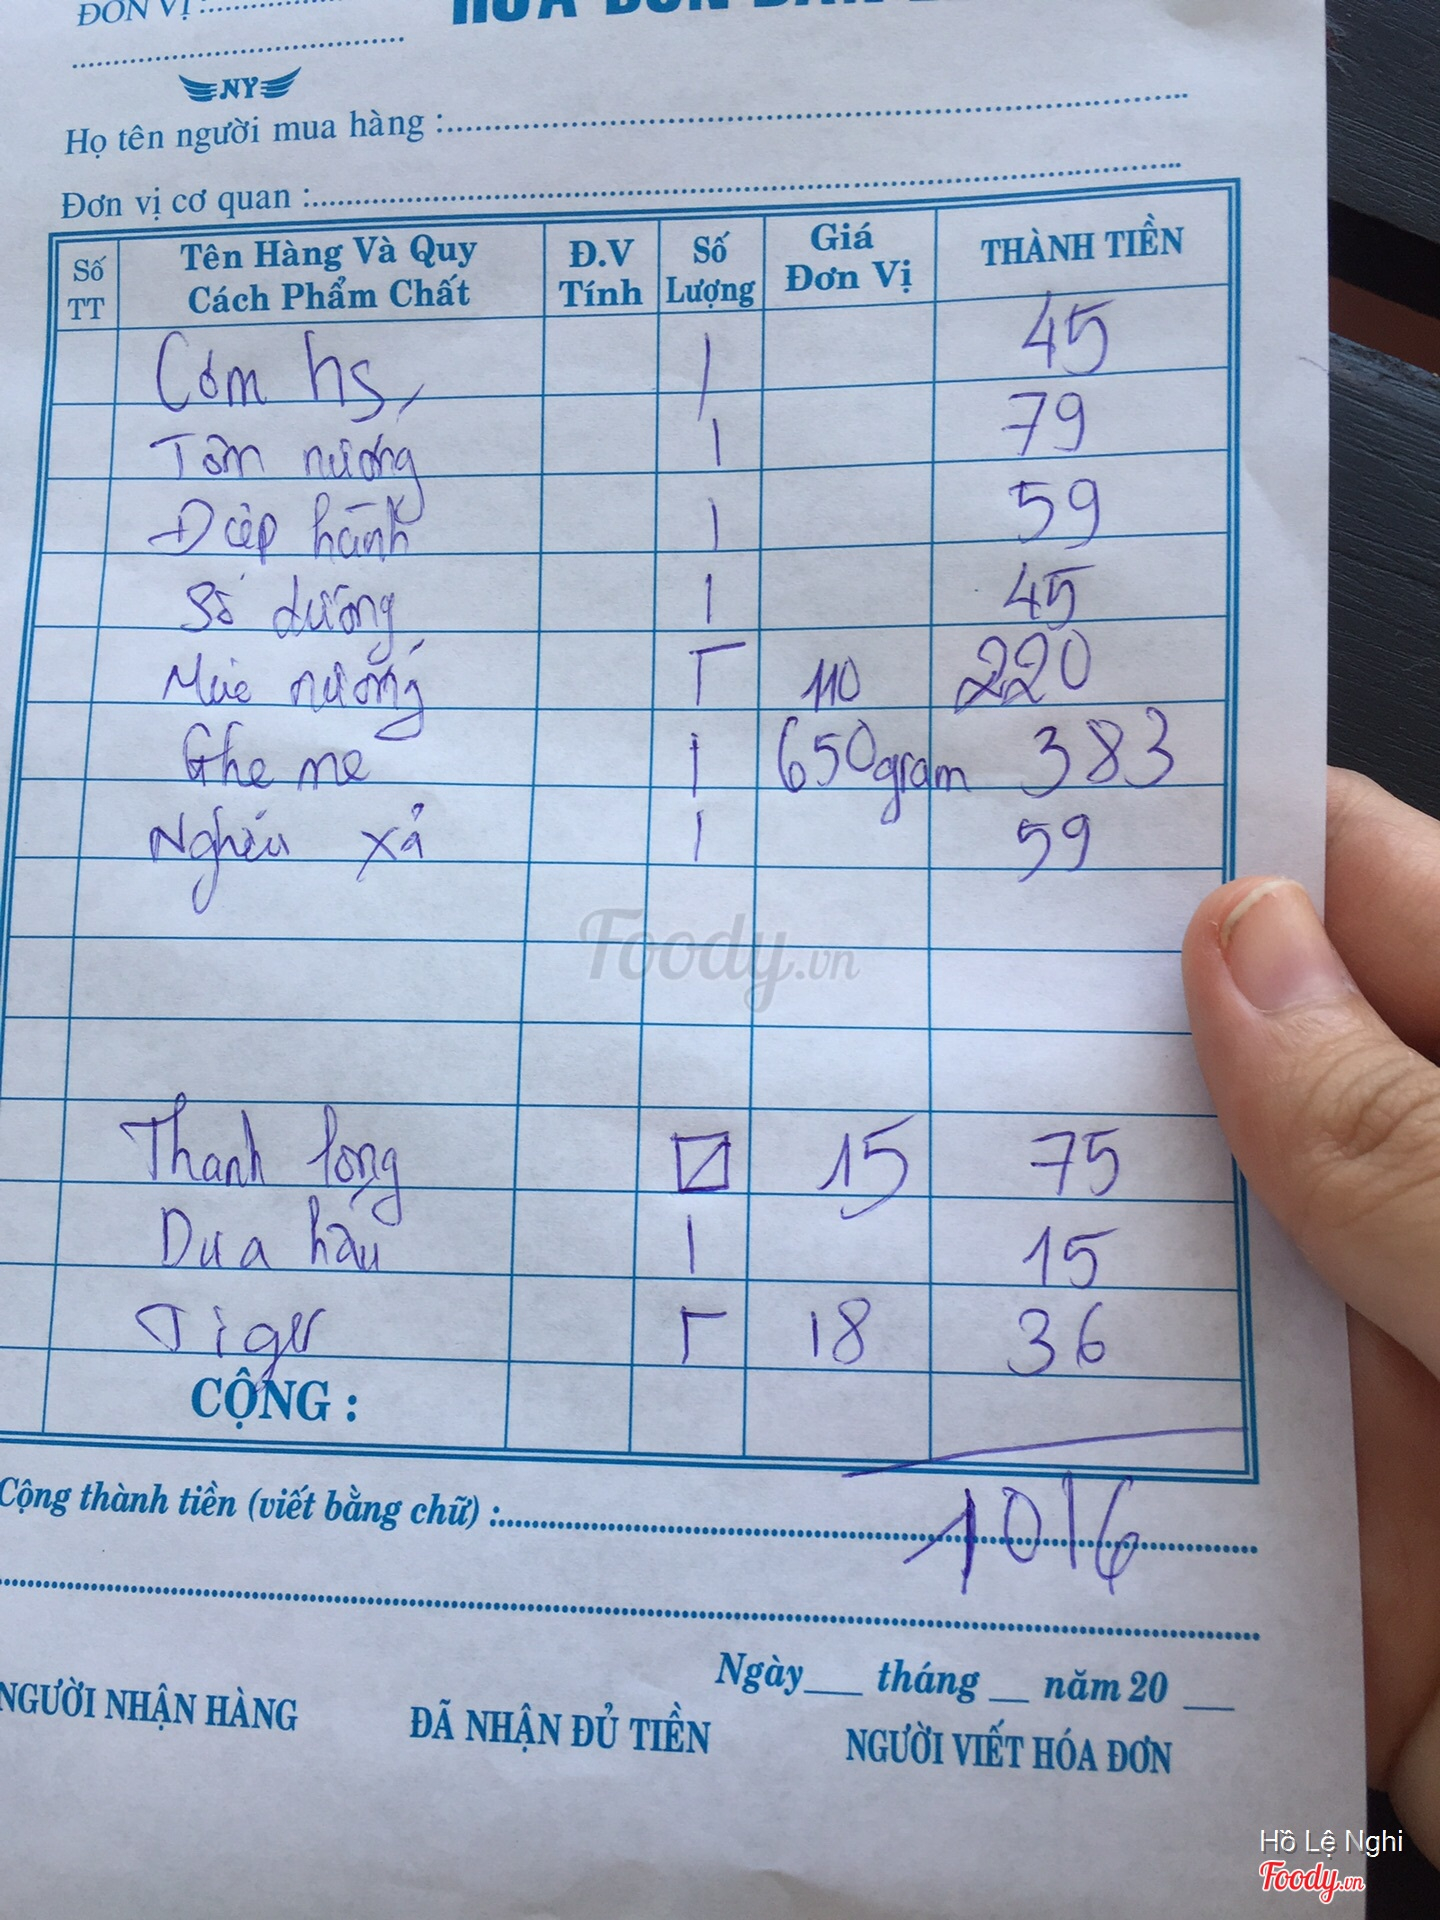 ĐƠN VỊ:
NY
Họ tên người mua hàng :
Đơn vị cơ quan :
Số TT Tên Hàng Và Quy Cách Phẩm Chất Đ.V Tính Số Lượng Giá Đơn Vị THÀNH TIỀN
Cơm hs 1 45
Tôm nướng 1 79
Điệp hành 1 59
Sò dương 1 45
Mực nướng 110 220
Ghẹ me 1 650gram 383
Nghêu xả 1 59
Foody.vn
Thanh long 15 75
Dưa hấu 1 15
Tiger 18 36
CỘNG :
Cộng thành tiền (viết bằng chữ) : 1016
Ngày tháng năm 20
NGƯỜI NHẬN HÀNG ĐÃ NHẬN ĐỦ TIỀN NGƯỜI VIẾT HÓA ĐƠN
Hồ Lệ Nghi
Foody.vn